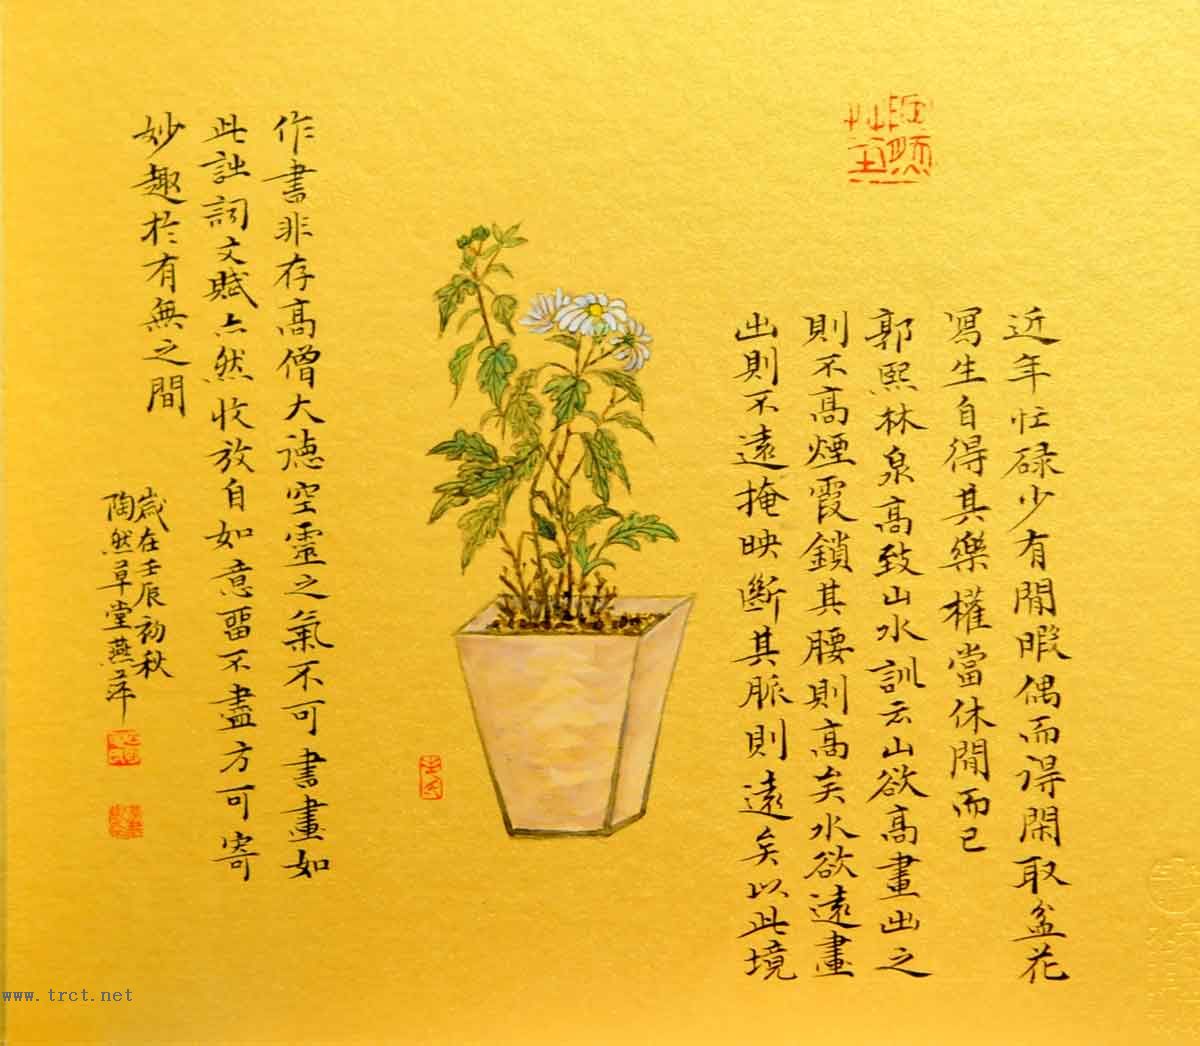 近年忙碌少有閒暇偶而得閑取盆花
寫生自得其樂權當休閒而已
郭熙林泉高致山水訓云山欲高畫出之
則不高煙霞鎖其腰則高矣水欲遠畫
出則不遠掩映斷其脈則遠矣以此境
作書非存高僧大德空靈之氣不可書畫如
此詘詞文賦亦然收放自如意畱不盡方可寄
妙趣於有無之間
歲在壬辰初秋
陶然草堂燕萍
www.trct.net